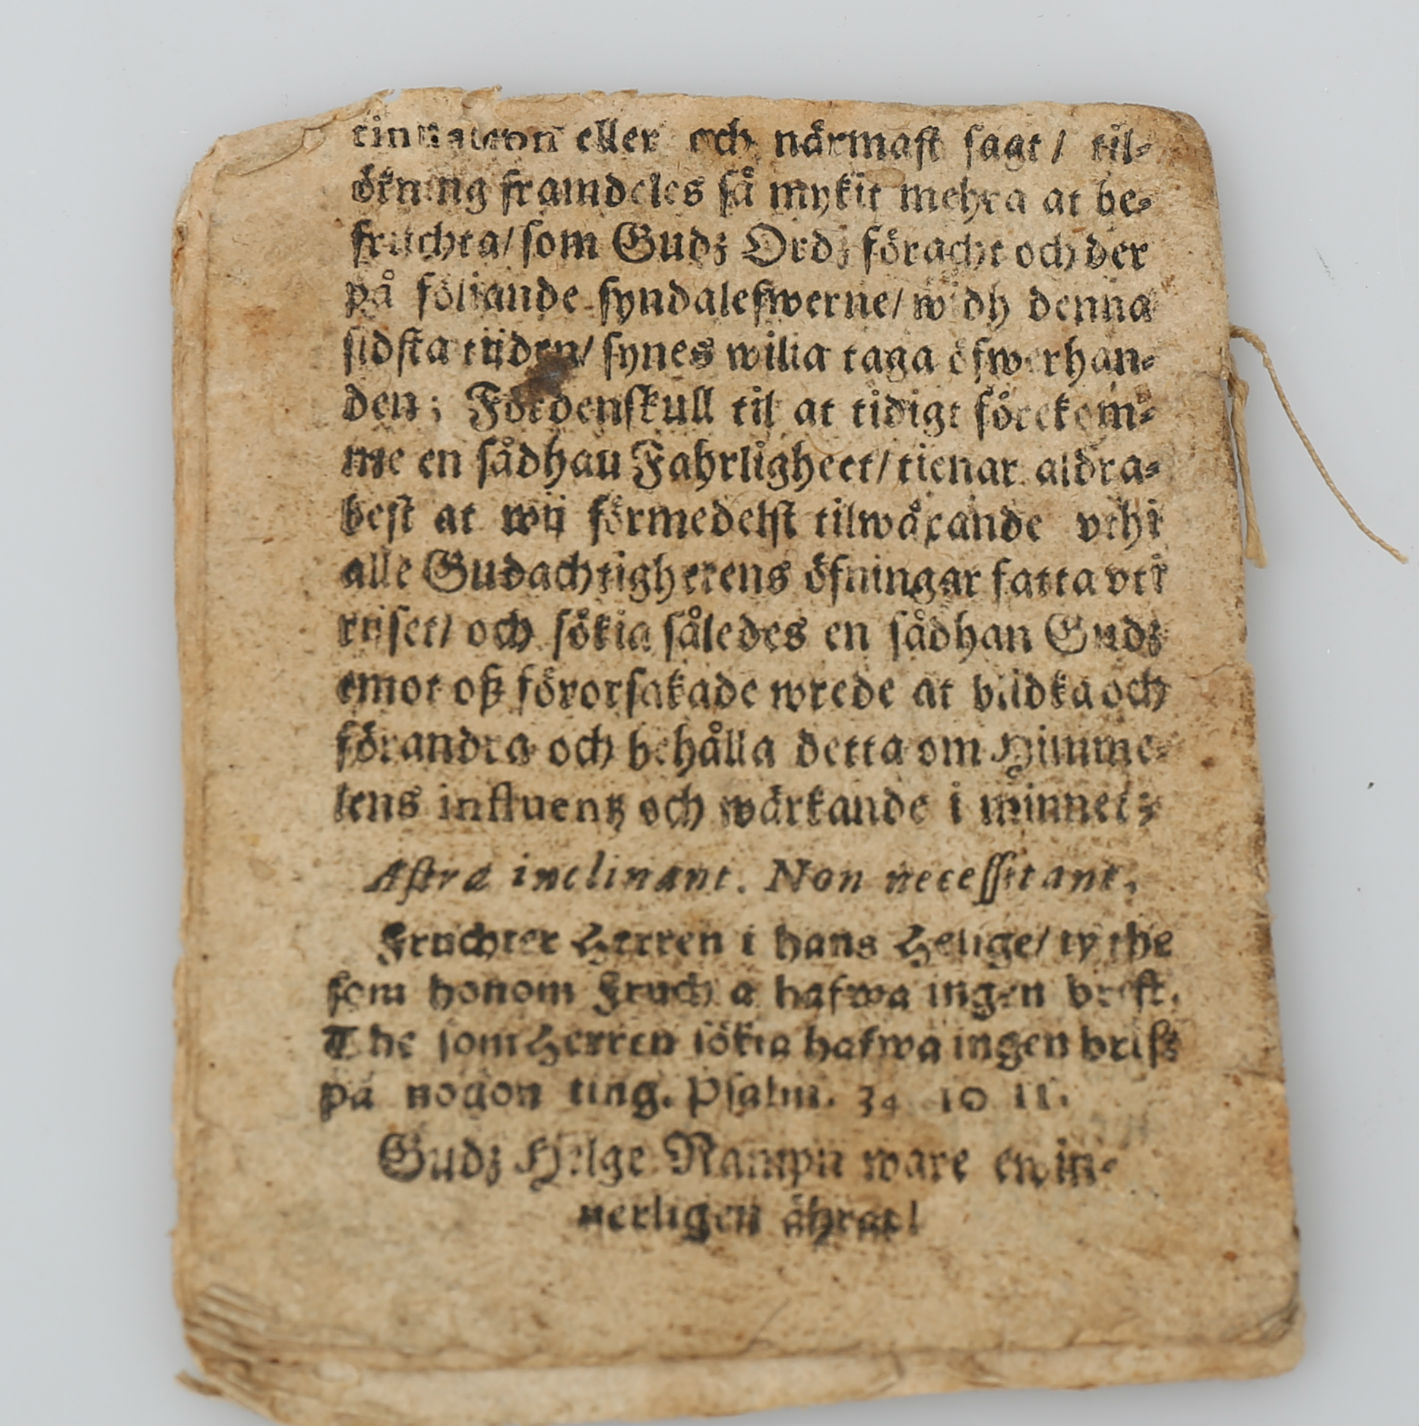 tinuation eller och närmast sagt / til-
ökning framdeles så mykit mehra at be-
fruchta/ som Gudz Ordz föracht och der
på föliande syndalefwerne/ widh denna
sidsta tijden/ synes wilia taga öfwerhan-
den; Fördenskull til at tidigt förekom-
me en sådhan Fahrligheet/ tienar aldra-
best at wij förmedelst tilwäxande vthi
alle Gudachtighetens öfningar fatta vti
rijset/ och sökia således en sådhan Gudz
emot oß förorsakade wrede at blidka och
förandra och behålla detta om Himme-
lens influentz och wärkande i minnet;
Astra inclinant. Non necessitant.
Fruchter Herren i hans Helige/ ty the
som honom Fruchta hafwa ingen brist.
The som Herren sökia hafwa ingen brist
på nogon ting. Psalm. 34 10 11.
Gudz Helge Nampn ware ewin-
nerligen ährat!